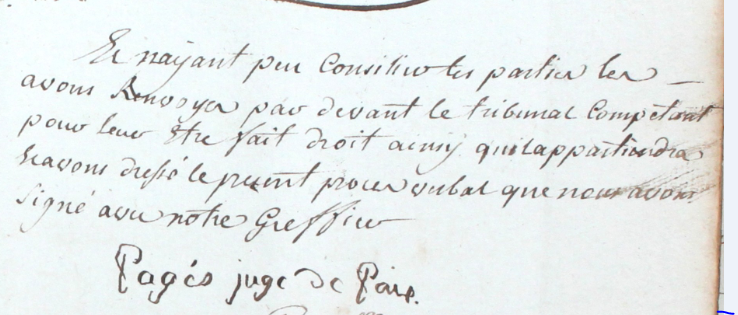 Et nayant peu Consilier les parties les
avons Renvoyer par devant le tribunal Compétant
pour leur Etre fait droit ainsy quil appartiendra
avons dressé le present procès verbal que nous avons
signé avec notre Greffier
Pagés juge de Paix.